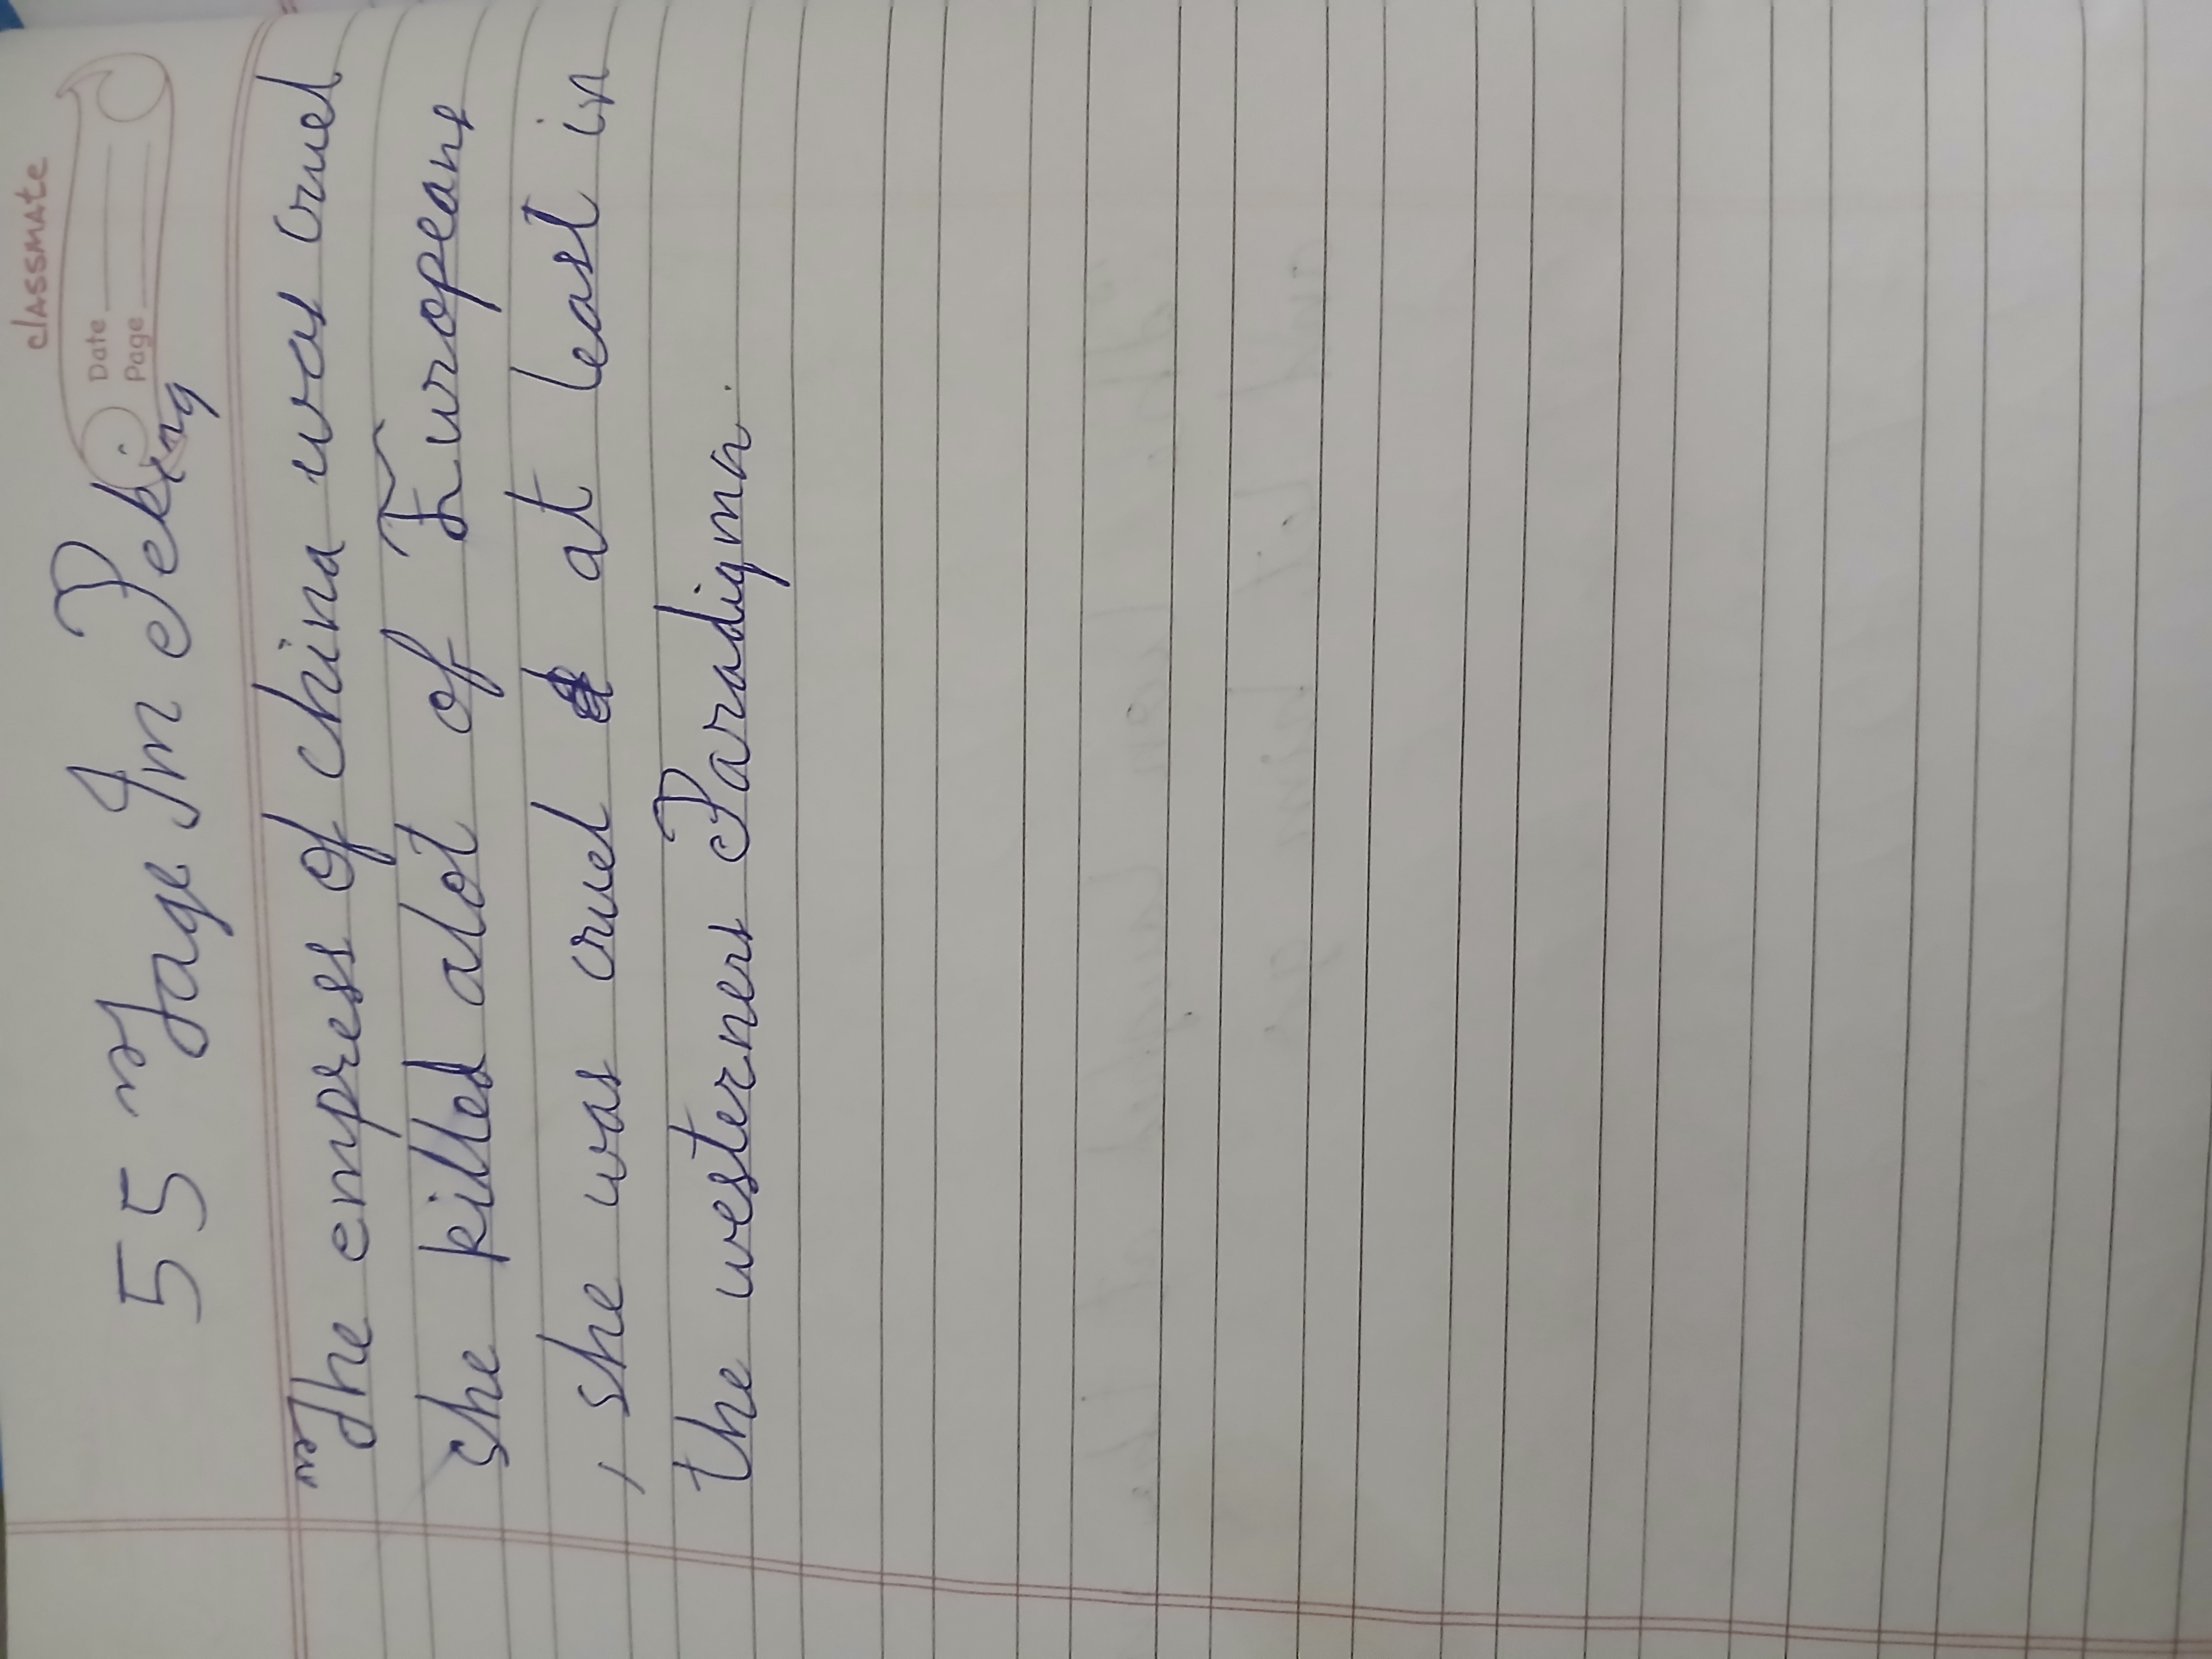 classmate
Date
Page
55 Tage In Peking
The empress of china was cruel
she killed alot of Europeans
, she was cruel at least in
the westerners Paradigma.